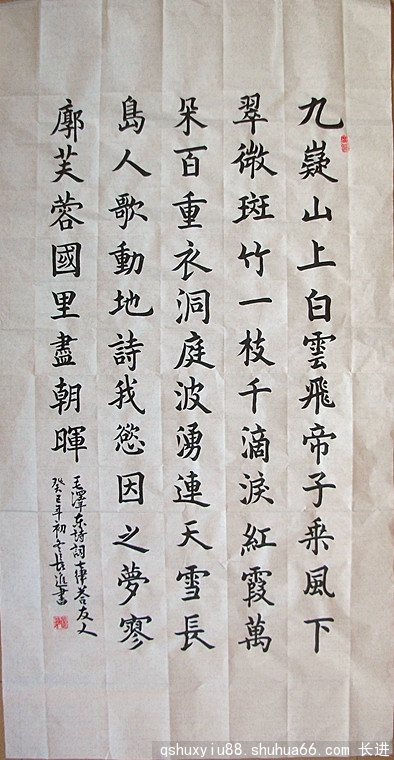 九嶷山上白雲飛帝子乗風下
翠微斑竹一枝千滴淚紅霞萬
朵百重衣洞庭波湧連天雪長
島人歌動地詩我慾因之夢寥
廓芙蓉國里盡朝暉
毛澤东詩詞七律答友人
癸巳年初冬長進書
qshuxyiu88.shuhua66.com 长进